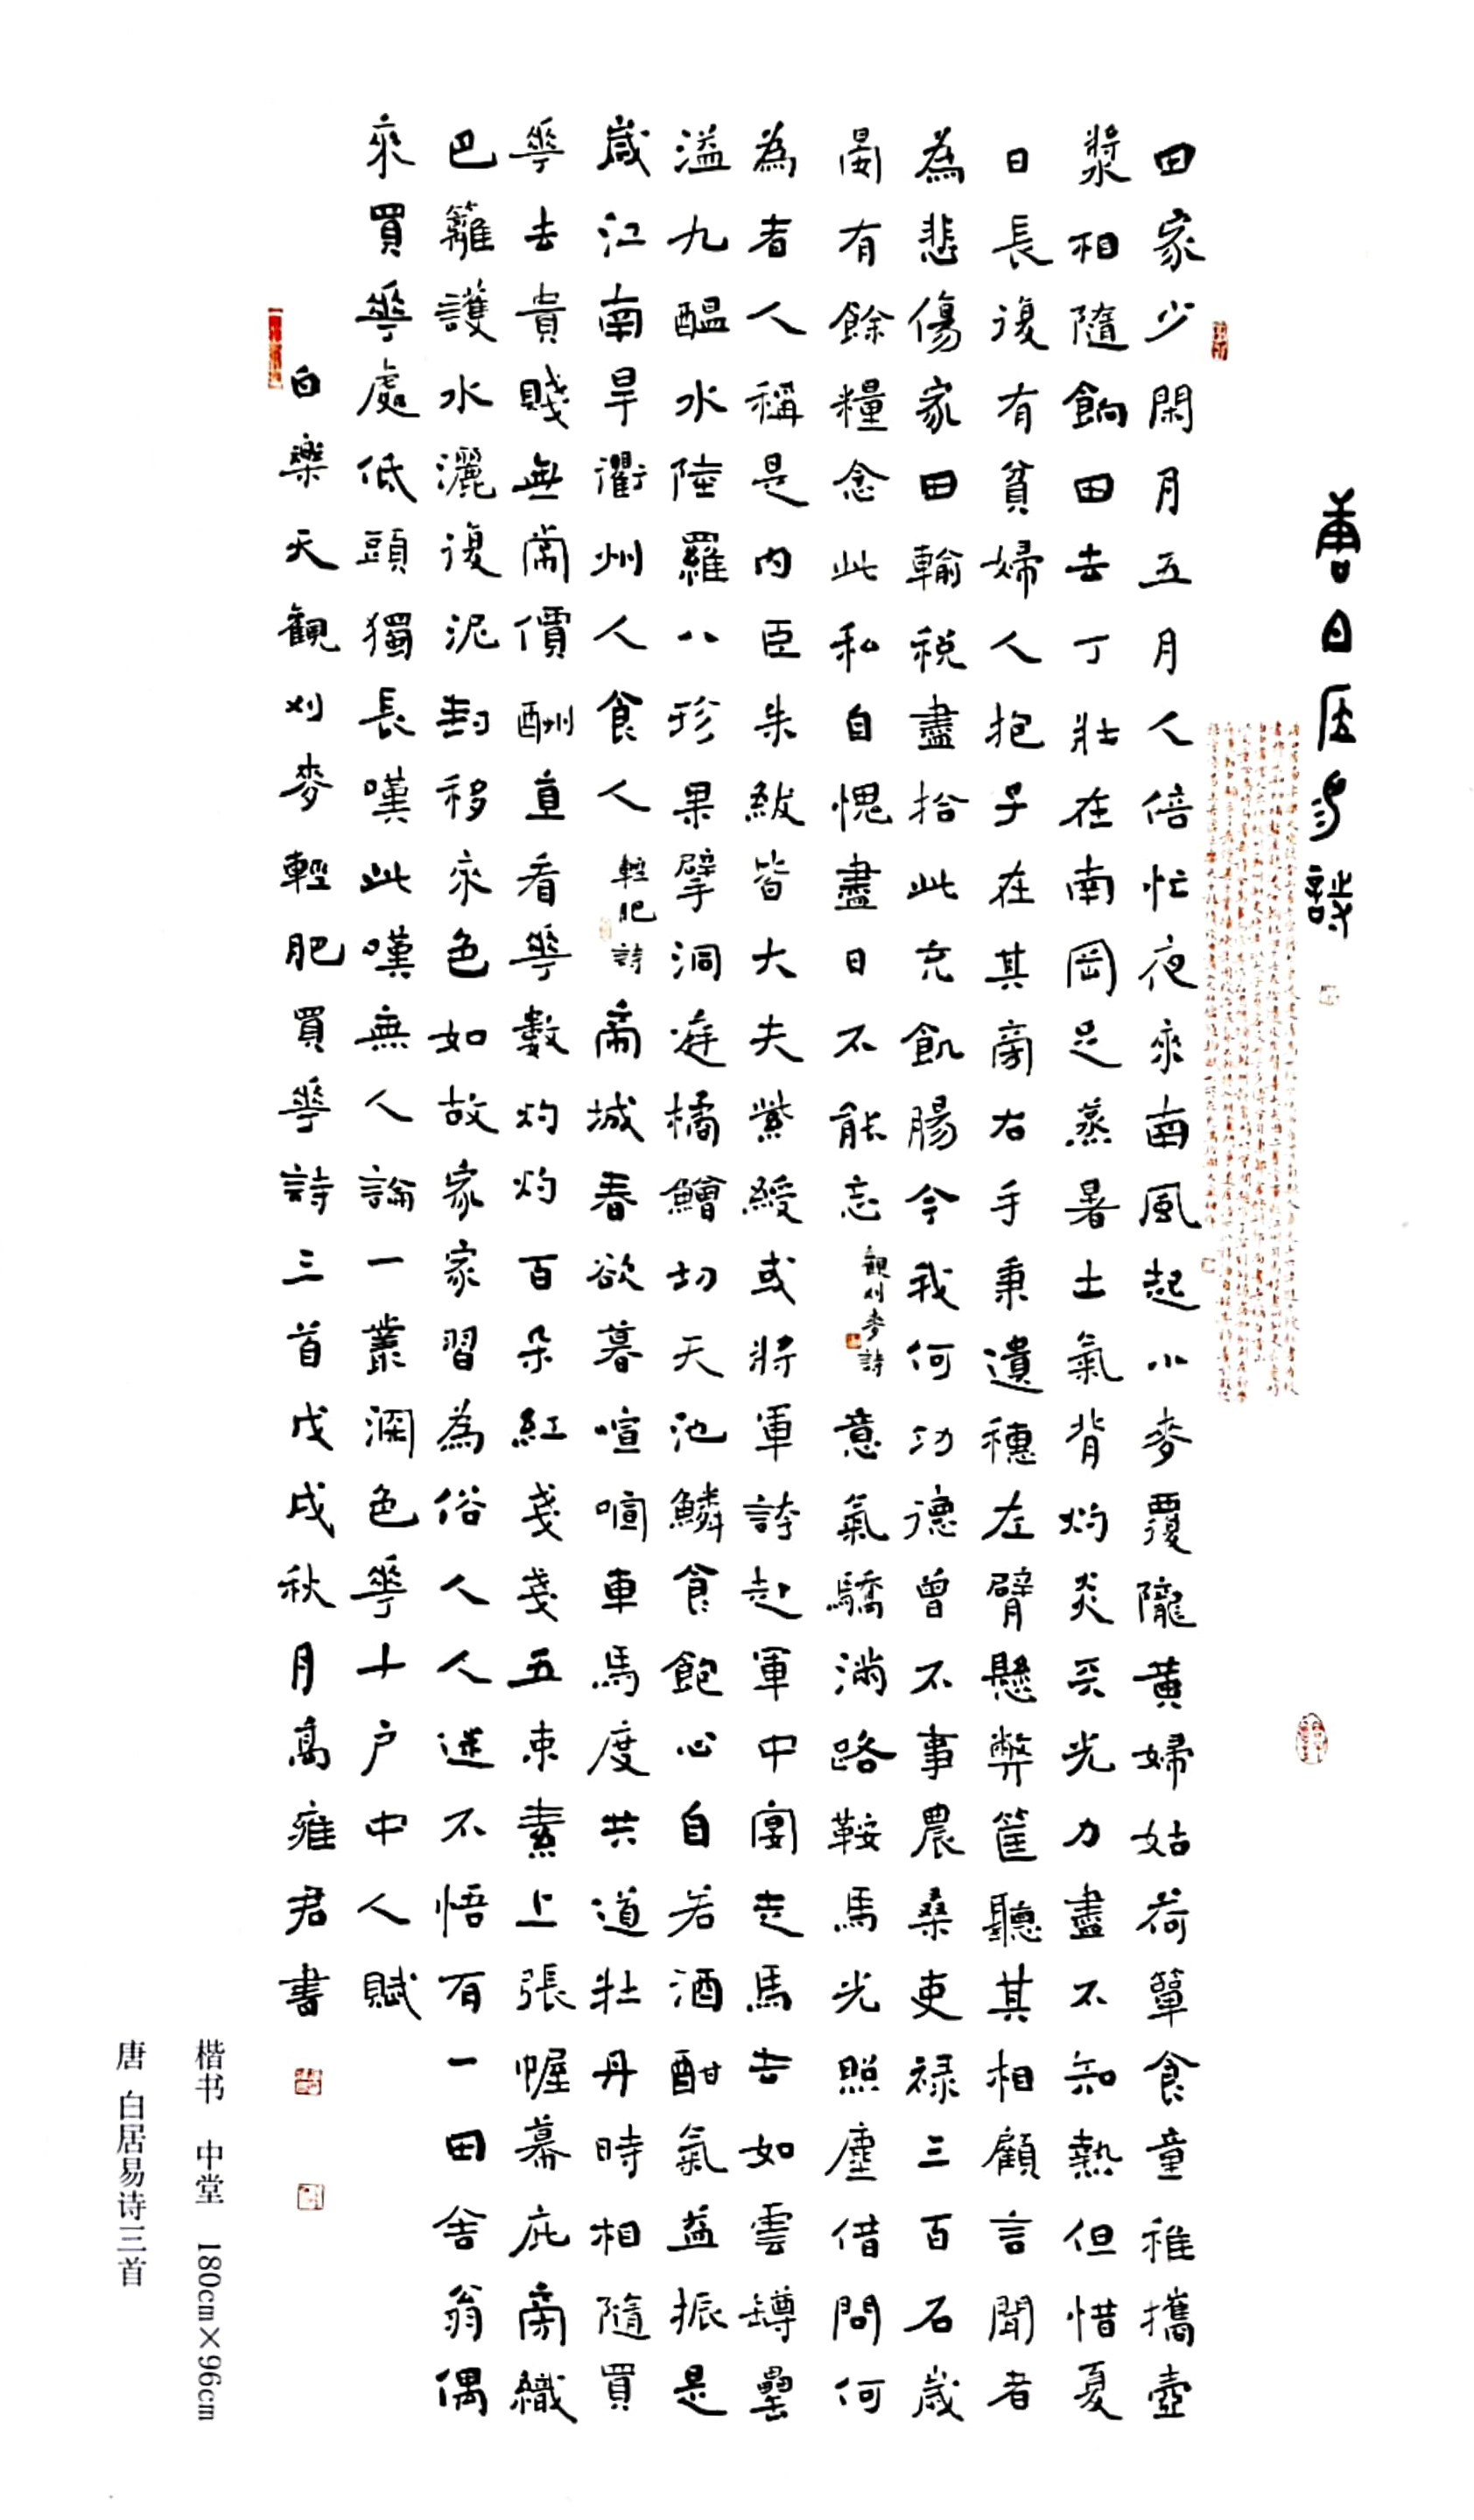 書白居易詩
田家少閑月五月人倍忙夜來南風起小麥覆隴黃婦姑荷簞食童稚攜壺
漿相隨餉田去丁壯在南岡足蒸暑土氣背灼炎天光力盡不知熱但惜夏
日長復有貧婦人抱子在其旁右手秉遺穗左臂懸弊筐聽其相顧言聞者
為悲傷家田輸稅盡拾此充飢腸今我何功德曾不事農桑吏祿三百石歲
晏有餘糧念此私自愧盡日不能忘觀刈麥詩意氣驕滿路鞍馬光照塵借問何
為者人稱是內臣朱紱皆大夫紫綬或將軍誇赴軍中宴走馬去如雲罇罍
溢九醞水陸羅八珍果擘洞庭橘鱠切天池鱗食飽心自若酒酣氣益振是
歲江南旱衢州人食人輕肥詩帝城春欲暮喧喧車馬度共道牡丹時相隨買
華去貴賤無常價酬直看華數灼灼百朵紅戔戔五束素上張幄幕庇旁織
巴籬護水灑復泥封移來色如故家家習為俗人人迷不悟有一田舍翁偶
來買華處低頭獨長嘆此嘆無人諭一叢深色華十戶中人賦
白樂天觀刈麥輕肥買華詩三首戊戌秋月高雍君書
楷书 中堂 180cm×96cm
唐 白居易诗三首